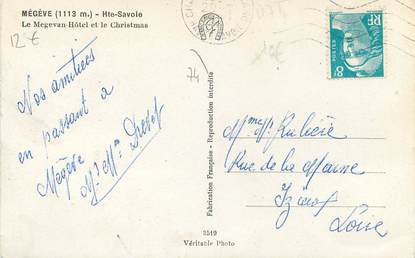 MÉGÈVE (1113 m.) - Hte-Savoie
Le Megevan-Hôtel et le Christmas
12 €
74
Nos amitiés
en passant à
Mégève
Mr Mme
POSTES
RF
8F
Mme Mr Rulière
Rue de la Marne
Izieux
Loire
Fabrication Française - Reproduction interdite
3519
Véritable Photo